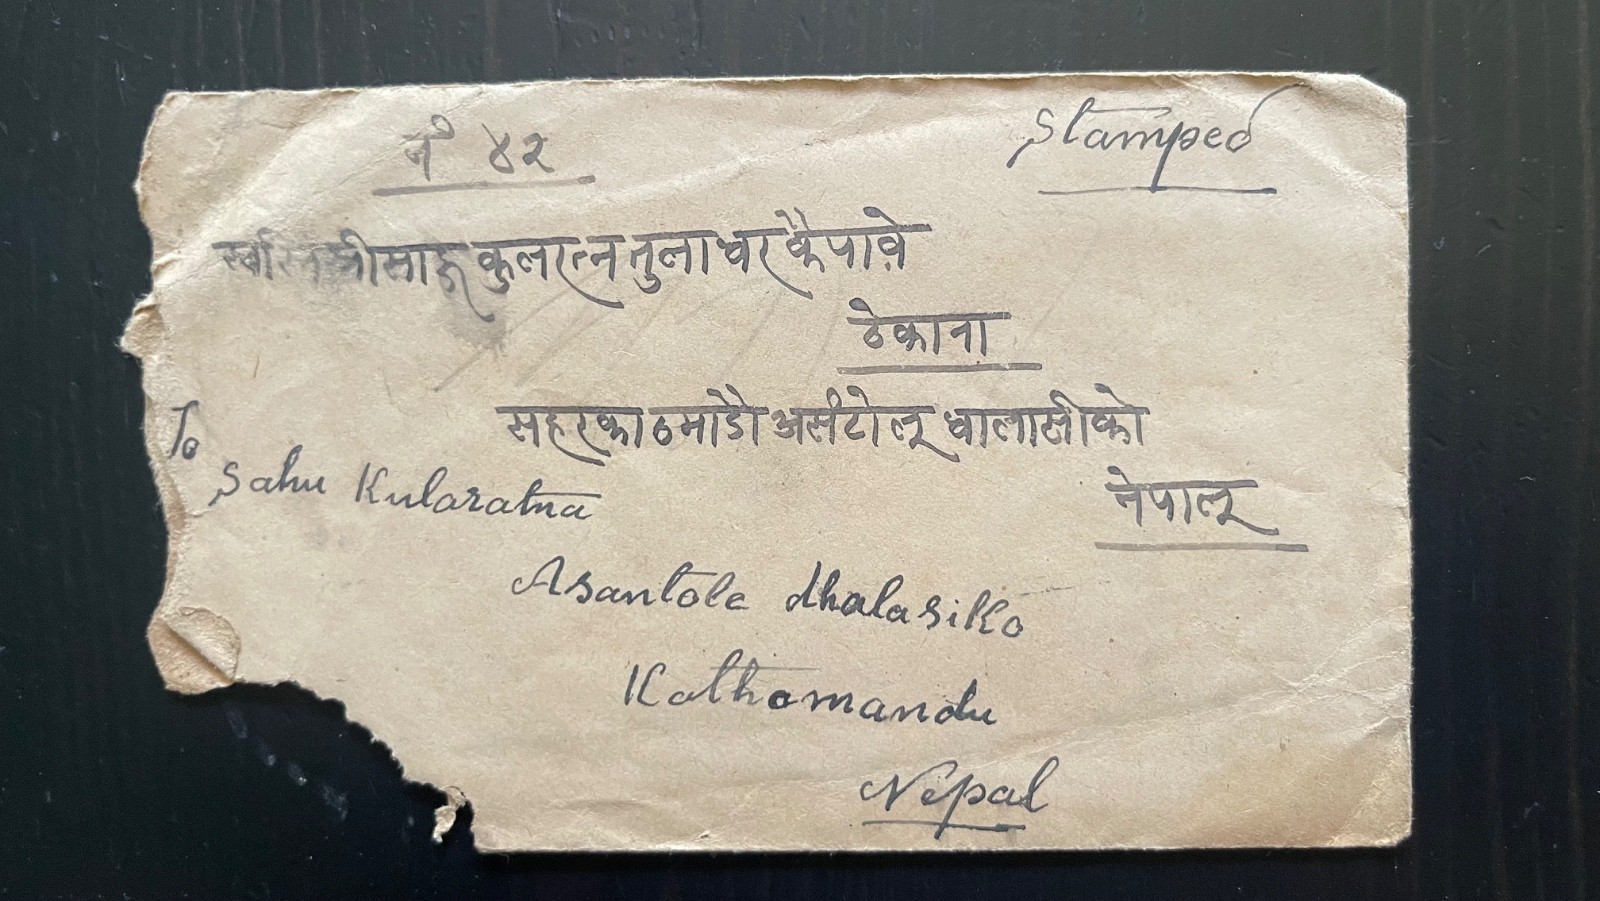 नं ४२
Stamped
स्वस्ति श्री साहू कुलरत्न तुलाधर कै पावे
ठेकाना
सहर काठमाडौ असंटोल् धालासीको
To
नेपाल्
Sahu Kularatna
Asantole dhalasiko
Kathamandu
Nepal